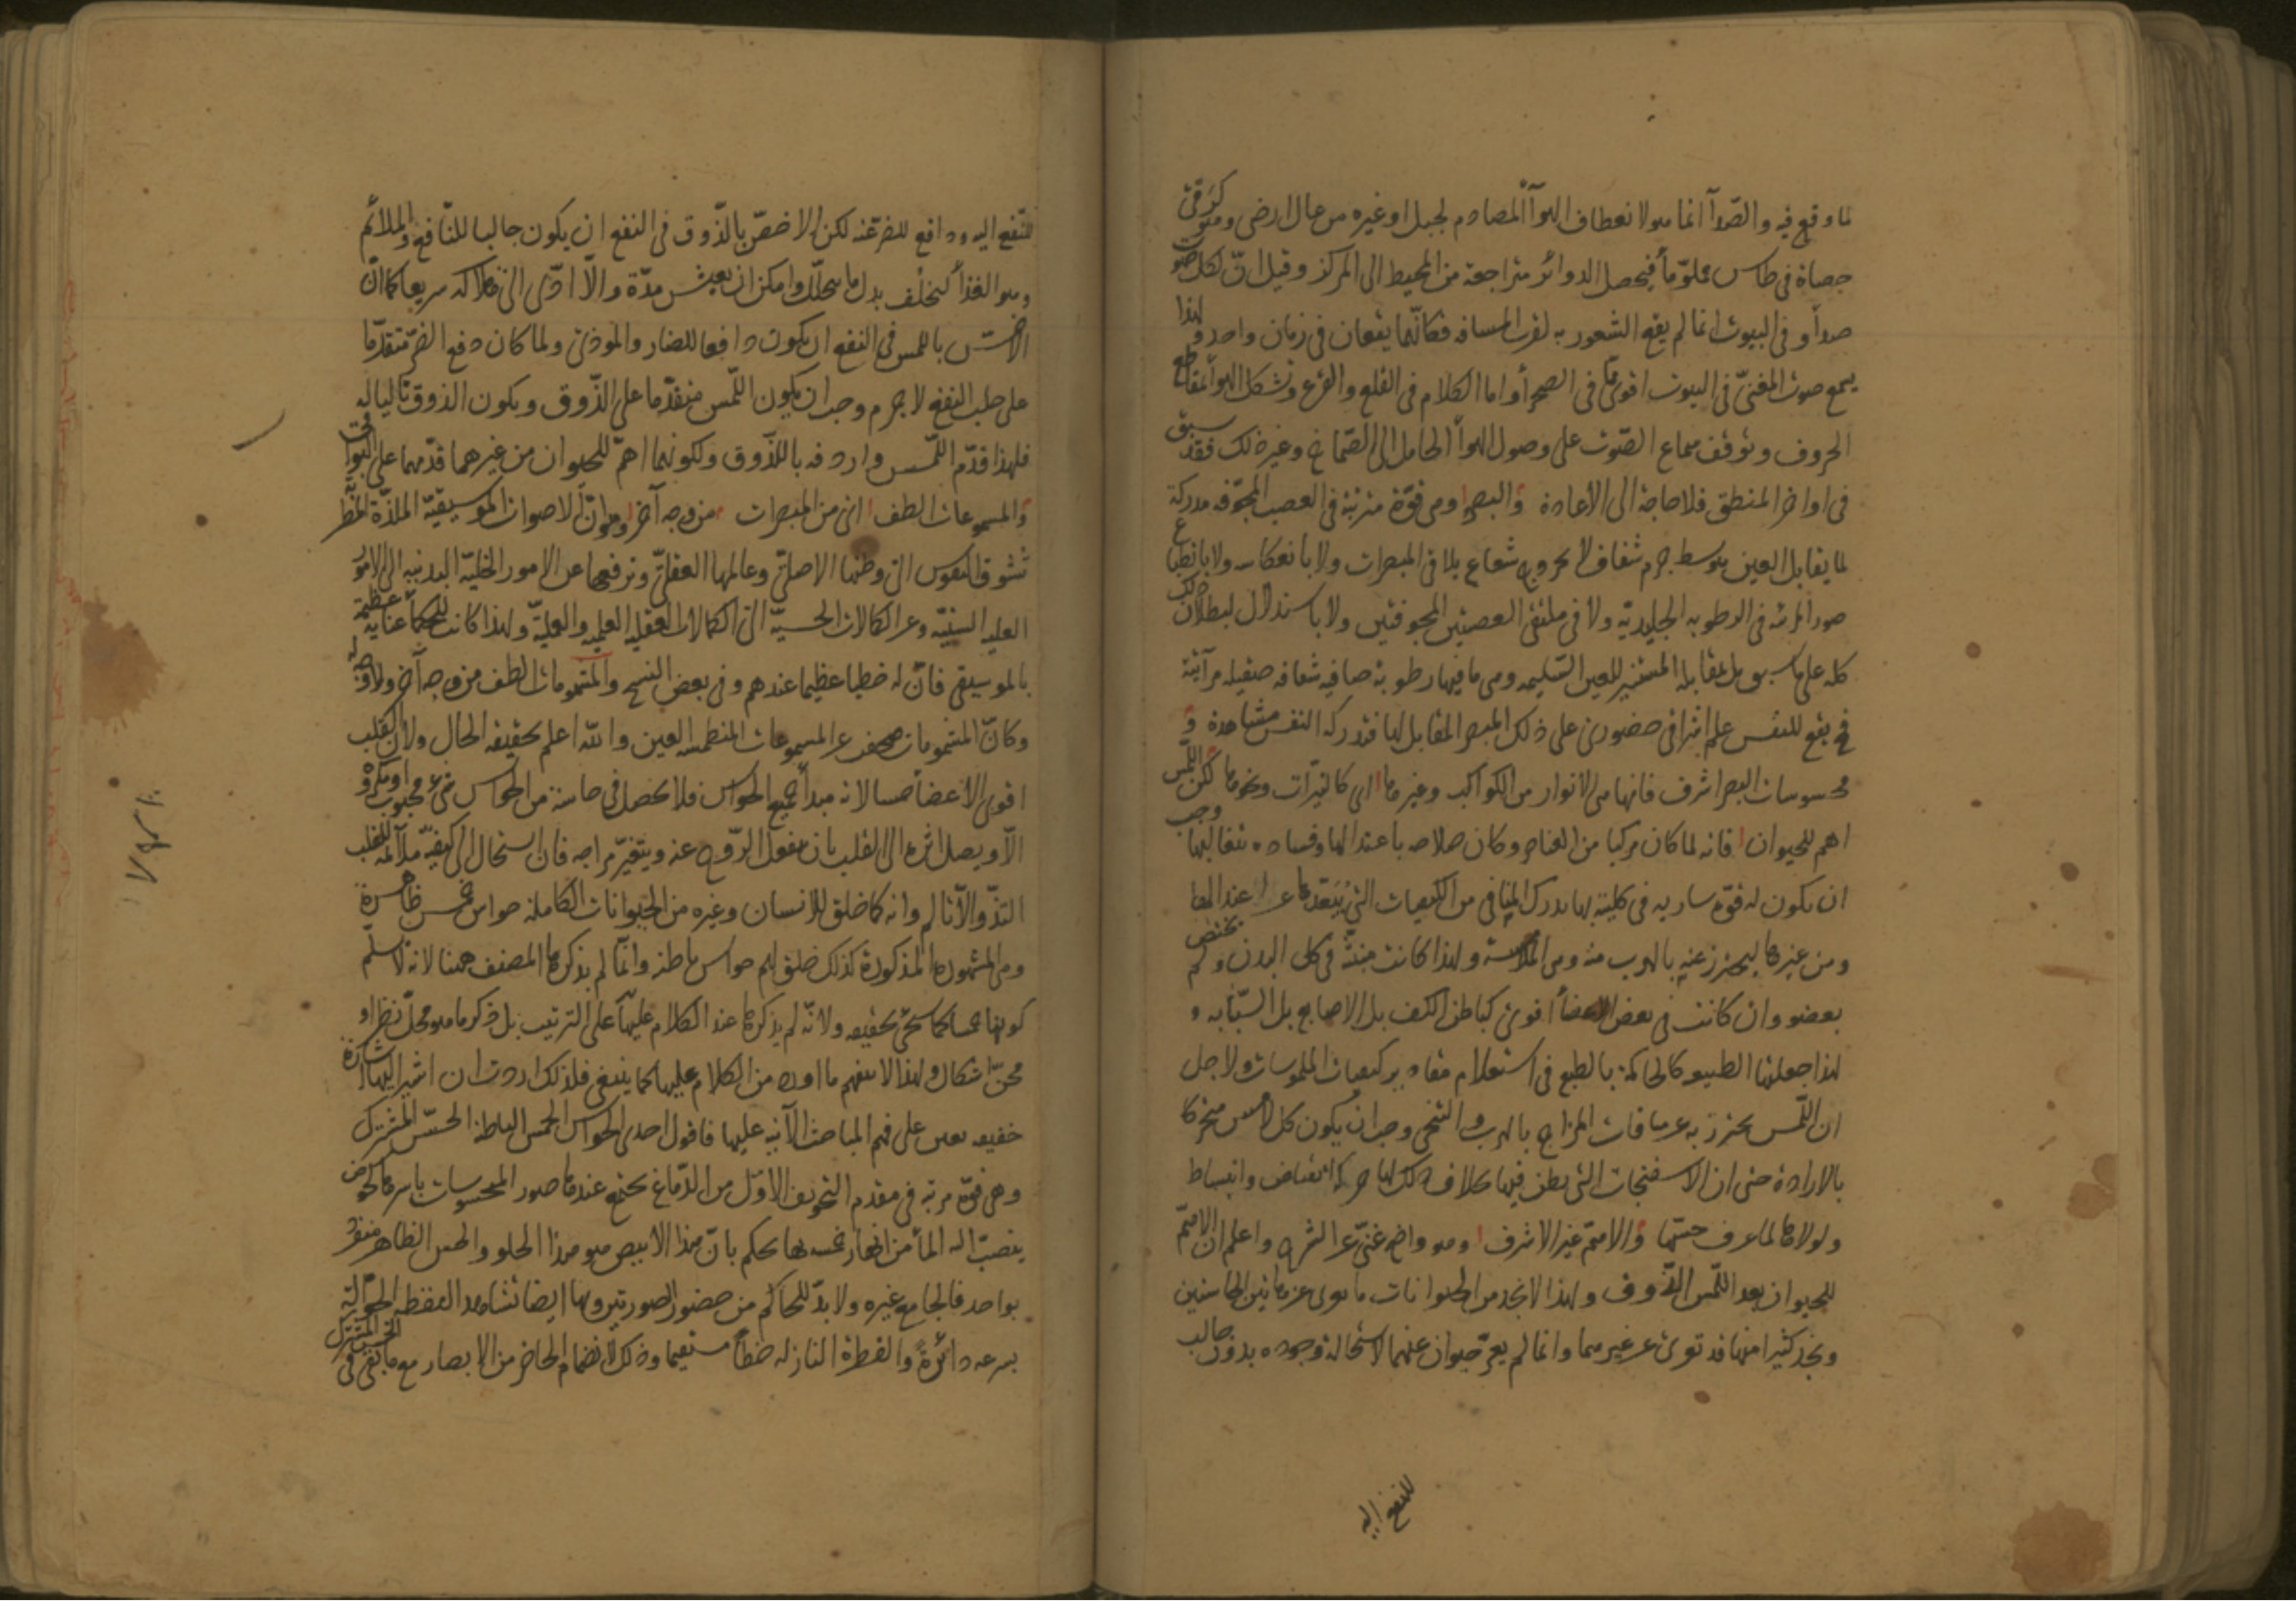 لما وقع فيه والصدآ انما هو لانعطاف الهوآ المصادم لجبل او غيره من عال ارضى وهو كرمى
حصاة فى طاس مملو مآ فيحصل الدوائر متراجعة من المحيط الى المركز وقيل ان لكل صوت
صدآ وفى البيوت انما لم يقع الشعور به لقرب المسافه فكانّهما يقعان فى زمان واحد ولهذا
يسمع صوت المغنىّ فى البيوت اقوى مما فى الصحرآ واما الكلام فى القلع والقرع وتشكل الهوآ بمقاطع
الحروف وتوقف سماع الصّوت على وصول الهوآ الحامل الى الصّماخ وغير ذلك فقد سبق
فى اواخر المنطق فلا حاجة الى الاعادة والبصر وهى قوّة مترتبة فى العصب المجوّفه مدركة
لما يقابل العين بتوسط جرم شفاف لا بخروج شعاع يلاقى المبصرات ولا بانعكاسه ولا بانطباع
صور المرئيه فى الرطوبه الجليديّة ولا فى ملتقى العصبتين المجوفتين ولا باستدلال لبطلان ذلك
كله على ما سبق بل بمقابله المستنير للعين السّليمه وهى ما فيها رطوبة صافيه شفافه صقيله مرآتية
فح يقع للنفس علم اشراقى حضورى على ذلك المبصر المقابل لها فتدركه النفس مشاهدة و
محسوسات البصر اشرف فانها هى الانوار من الكواكب وغيرها اى كالنيّرات ونحوها لكن اللّمس
اهم للحيوان فانه لما كان مركبا من العناصر وكان صلاحه باعتدالها وفساده بتغالبها وجب
ان يكون له قوّة ساريه فى كليته بها يدرك المنافى من الكيفيات التى
ومن غيرها ليحترز عنه بالهرب منه وهى اللامسة ولهذا كانت منبثّة فى كل البدن ولم يختص
بعضو وان كانت فى بعض الاعضآ اقوى كباطن الكف بل الاصابع بل السّبّابه و
لهذا جعلتها الطبيعه كالحاكمة بالطبع فى استعلام مقادير كيفيات الملموسات ولاجل
ان اللّمس يحترز به عن منافيات المزاج بالهرب والتنحى وجب ان يكون كل لامس متحركا
بالارادة حتى ان الاسفنجات التى يظن فيها خلاف ذلك لها حركة انقباض وانبساط
ولولاها لما عرف حسّها والاهمّ غير الاشرف وهو واضح غنىّ عن الشرح واعلم ان الاهمّ
للحيوان بعد اللّمس الذّوق ولهذا لا نجد من الحيوانات ما تعرى عن هاتين الحاستين
ونجد كثيرا منها قد تعرى عن غيرهما وانما لم يعرّ حيوان عنهما لاستحالة وجوده بدون جالب
للنفع اليه
للنّفع اليه ودافع للضرّ عنه لكن الاخصّ بالذّوق فى النفع ان يكون جالبا للنّافع والملائم
وهو الغذآ ليخلف بدل ما يتحلّل وامكن ان يعيش مدّة والّا ادّى الى هلاكه سريعا كما انّ
الاخصّ باللمس فى النفع ان يكون دافعا للضار والموذى ولما كان دفع الضرّ متقدّما
على جلب النفع لا جرم وجب ان يكون اللّمس متقدّما على الذّوق ويكون الذوق تاليا له
فلهذا قدّم اللّمس واردفه بالذّوق ولكونهما اهمّ للحيوان من غيرهما قدّمهما على البواقى
والمسموعات الطف اى من المبصرات من وجه آخر وهو انّ الاصوات الموسيقيّة الملذّة المطربة
تشوق النفوس الى وطنها الاصلىّ وعالمها العقلىّ وترفعها عن الامور البدنيه الى الامور
العليه السنيّه وعن الكمالات الحسيّة الى الكمالات العقليه العلميه والعمليّة ولهذا كانت للحكمآ عناية عظيمة
بالموسيقى فانّ له خطبا عظيما عندهم وفى بعض النسخ والمشمومات الطف من وجه آخر ولا وجه له
وكانّ المشمومات مصحف عن المسموعات المنطمسه العين والله اعلم بحقيقه الحال ولان القلب
اقوى الاعضآ حسا لانه مبدأ جميع الحواس فلا يحصل فى حاسة من الحواس شئ محبوب او مكروه
الّا ويصل اثره الى القلب بان ينفعل الرّوح عنه ويتغيّر مزاجه فان استحال الى كيفيّة ملائمه للقلب
التذّ والّا تالم وانه كما خلق للانسان وغيره من الحيوانات الكاملة حواس خمس ظاهرة
وهى المشهورة المذكورة كذلك خلق لهم حواس باطنه وانّما لم يذكرها المصنف ههنا لانه لا يسلّم
كونها خمسا كما سيجئ تحقيقه ولانّه لم يذكرها عند الكلام عليها على الترتيب بل ذكر ما هو محلّ نظر او
محزّ اشكال ولهذا لا يفهم ما اورده من الكلام عليها كما ينبغى فلذلك اردت ان اشير اليها اشارة
خفيفه تعين على فهم المباحث الآتيه عليها فاقول احدى الحواس الخمس الباطنة الحسّ المشترك
وهى قوّة مرتبه فى مقدم التجويف الاوّل من الدّماغ يجتمع عندها صور المحسوسات باسرها كحوض
ينصبّ اليه المآ من انهار خمسه بها يحكم بانّ هذا الابيض هو هذا الحلو والحس الظاهر منفرد
بواحد فالجامع غيره ولا بدّ للحاكم من حضور الصورتين وبها ايضا نشاهد النقطه الجوّاله
بسرعه دائرةً والقطرة النازله خطاً مستقيما وذلك لانضمام الحاضر من الابصار مع ما بقى فى الحس المشترك